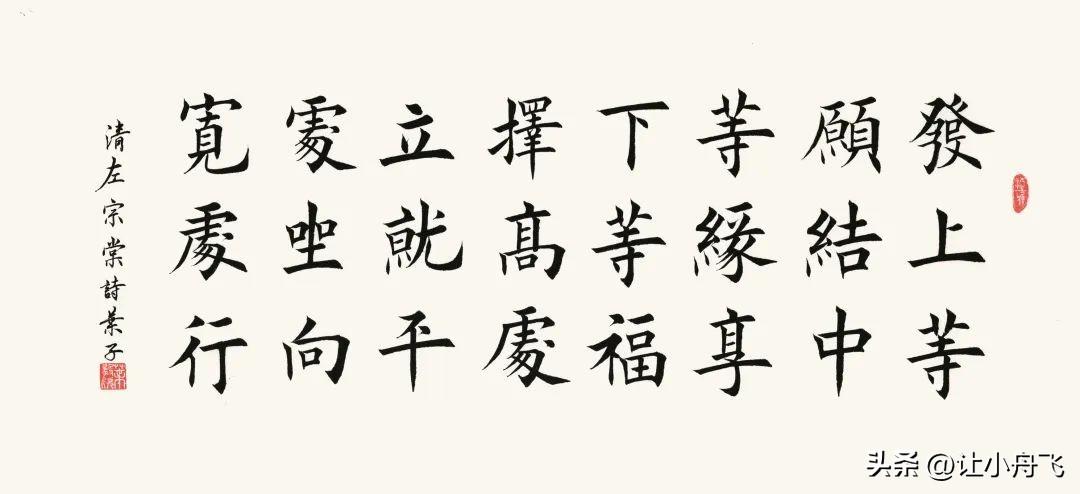 發上等
願結中
等緣享
下等福
擇高處
立就平
處坐向
寬處行
清左宗棠詩葉子
头条 @让小舟飞